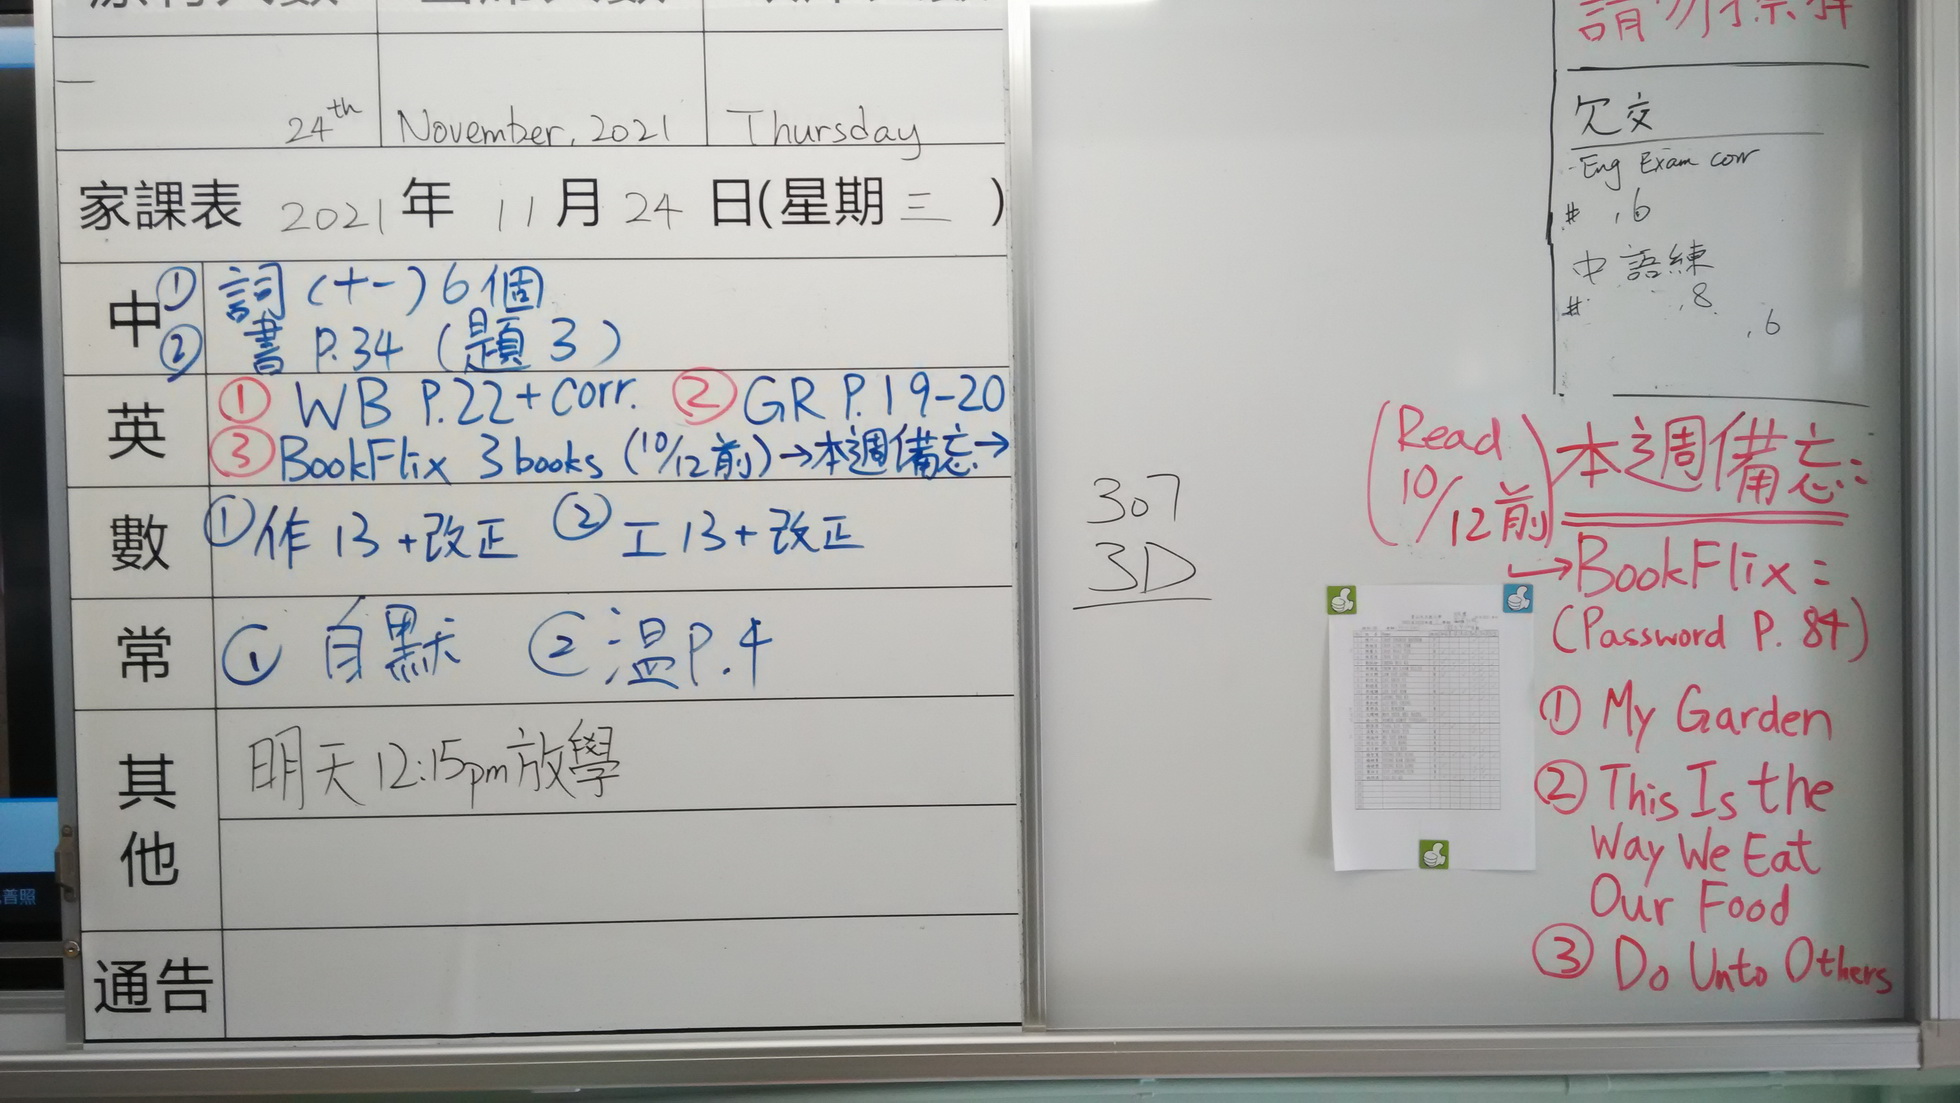 24th November, 2021 Thursday
家課表 2021 年 11 月 24 日(星期 三 )
中 ① 詞 (十一) 6個
② 書 P.34 (題 3)
英 ① WB P.22 + corr. ② GR P.19-20
③ BookFlix 3 books (10/12前) → 本週備忘 →
數 ① 作 13 + 改正 ② 工 13 + 改正
常 ① 自默 ② 溫 P.4
其他 明天 12:15pm 放學
通告
307
3D
請勿
欠交
- Eng Exam corr
# , 6
中 語練
# , 8
, 6
(Read 10/12前)
本週備忘:
→ BookFlix:
(Password P. 84)
① My Garden
② This Is the
Way We Eat
Our Food
③ Do Unto Others
普照